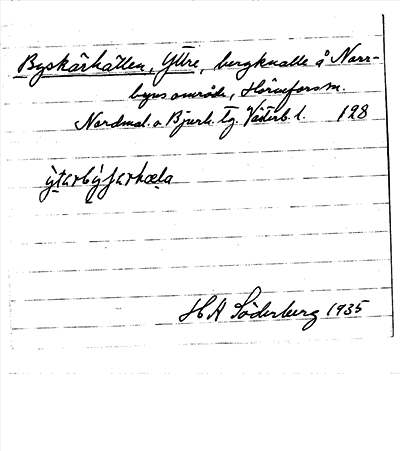 Byskärhällen, Yttre, bergknalle å Norr-
byns område, Hörnefors sn.
Nordmal. o Bjurh. tg. Västerb. l. 128
H A Söderberg 1935